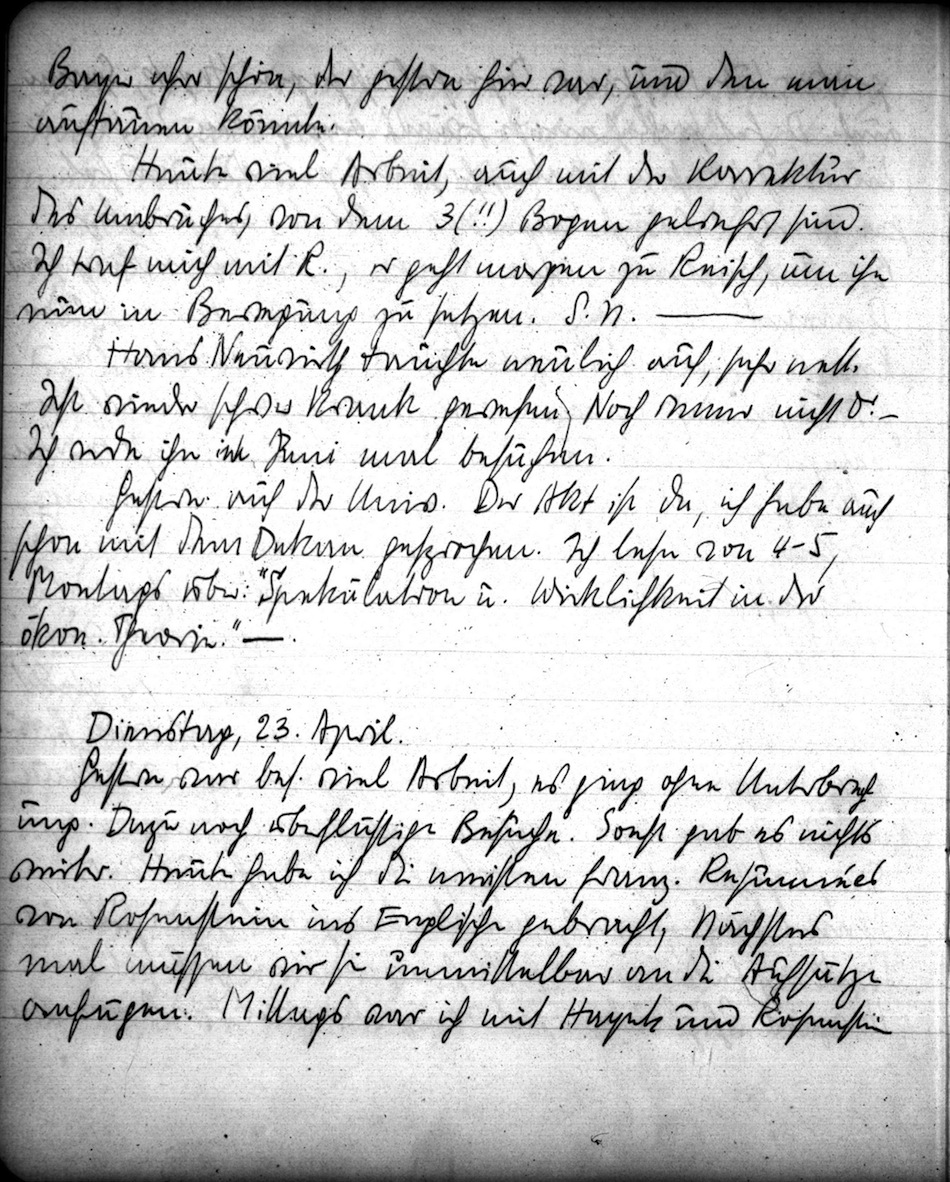 Bayer sehr schön, der gestern hier war, und den man
auftauen könnte.
Heute viel Arbeit, auch mit der Korrektur
des Umbruches, von dem 3(!!) Bogen geliefert sind.
Ich traf mich mit R., er geht morgen zu Reisch, um ihn
nun in Bewegung zu setzen. S. N. —
Hans Neurath tauchte neulich auf, sehr nett.
Ist wieder schwer krank gewesen, Noch immer nicht Dr. –
Ich werde ihn im Juni mal besuchen.
Gestern auf der Univ. Der Akt ist da, ich habe auch
schon mit dem Dekan gesprochen. Ich lese von 4–5,
Montags über: "Spekulation u. Wirklichkeit in der
ökon. Theorie." —.
Dienstag, 23. April.
Gestern war bes. viel Arbeit, es ging ohne Unterbrech
ung. Dazu noch überflüssige Besuche. Sonst gab es nichts
weiter. Heute habe ich die meisten franz. Resumées
von Rosenstein ins Englische gebracht, Nächstes
mal müssen wir sie unmittelbar an die Aufsätze
anfügen. Mittags war ich mit Hayek und Rosenstein